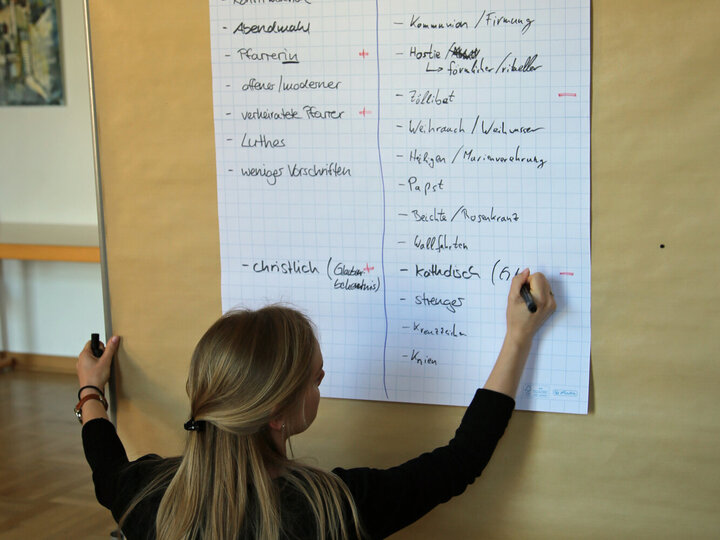 - Abendmahl
- Pfarrerin +
- offener/moderner
- verheiratete Pfarrer +
- Luther
- weniger Vorschriften
- christlich (Glauben +
bekenntnis)
- Kommunion / Firmung
- Hostie /
↳ förmlicher/ritueller
- Zölibat —
- Weihrauch / Weihwasser
- Heiligen / Marienverehrung
- Papst
- Beichte / Rosenkranz
- Wallfahrten
- katholisch (Gl —
- strenger
- Kreuzzeichen
- Knien